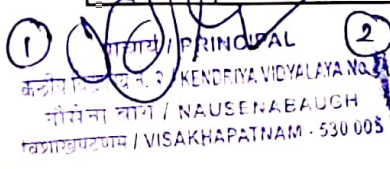 1 2
प्राचार्य / PRINCIPAL
केन्द्रीय विद्यालय नं. 2 / KENDRIYA VIDYALAYA NO.
नौसेना बाग / NAUSENABAUGH
विशाखपट्टणम / VISAKHAPATNAM - 530 005